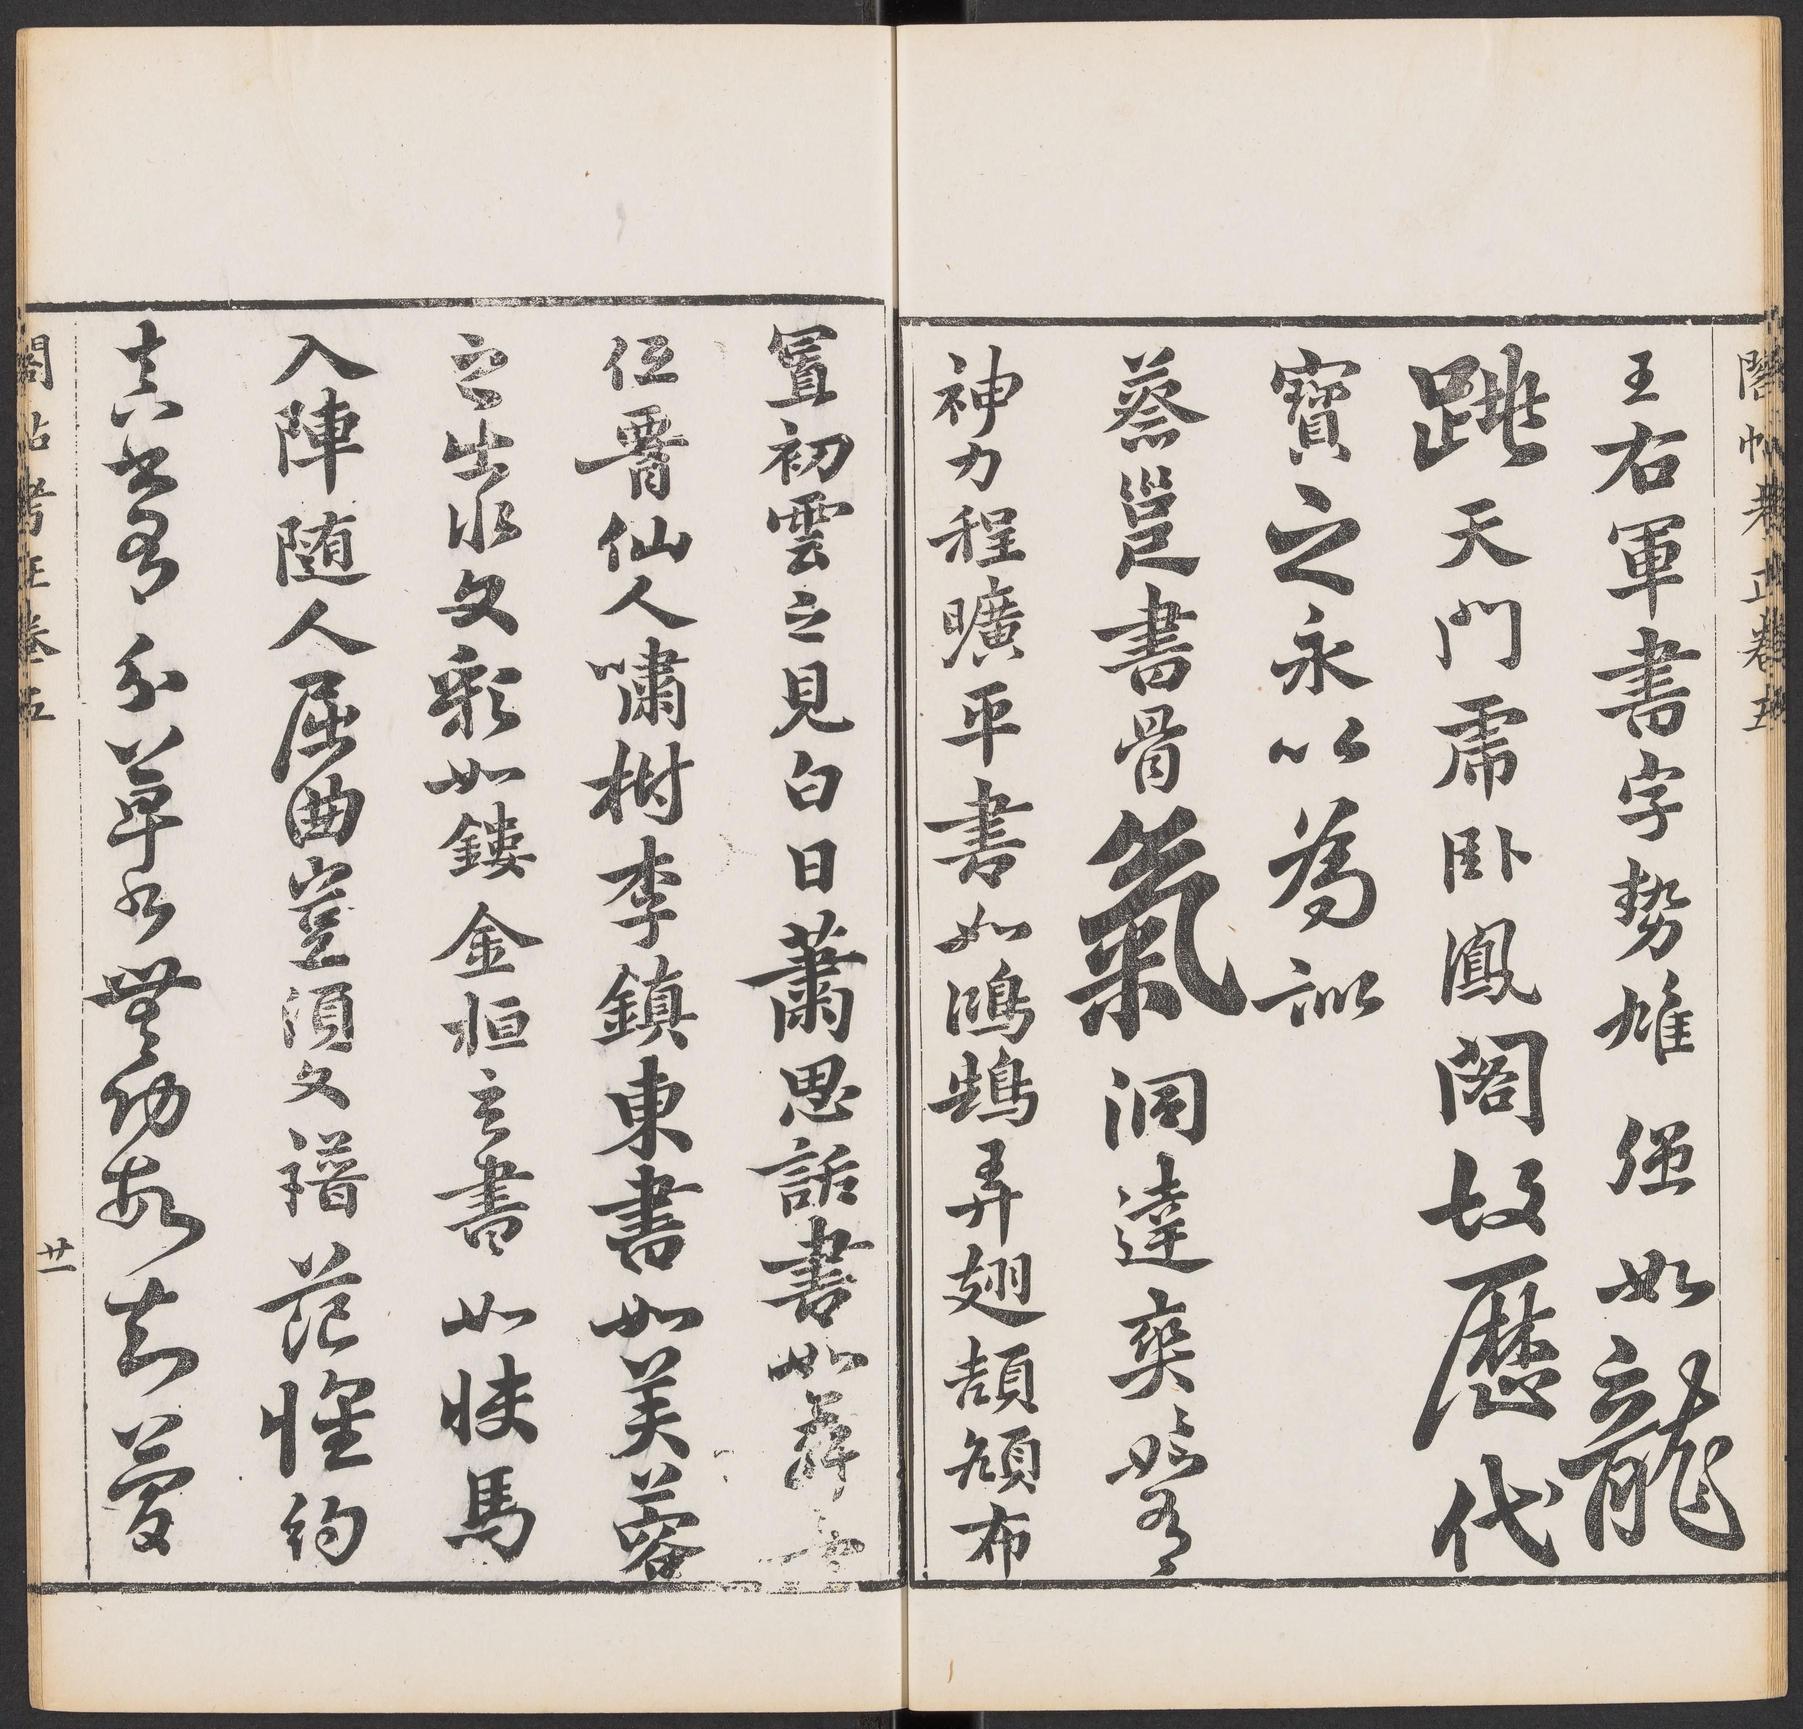 閣帖考正卷五
王右軍書字勢雄強如龍
跳天門虎卧鳳閣故歷代
寶之永以為訓
蔡邕書骨氣洞達爽爽如有
神力程曠平書如鴻鵠弄翅頡頏布
置初雲之見白日蕭思話書如舞女
低腰仙人嘯樹李鎮東書如芙蓉
之出水文彩如鏤金桓玄書如快馬
入陣随人屈曲豈須文譜范懷約
真書有分草書無功故知簡
閣帖考正卷五
廿一